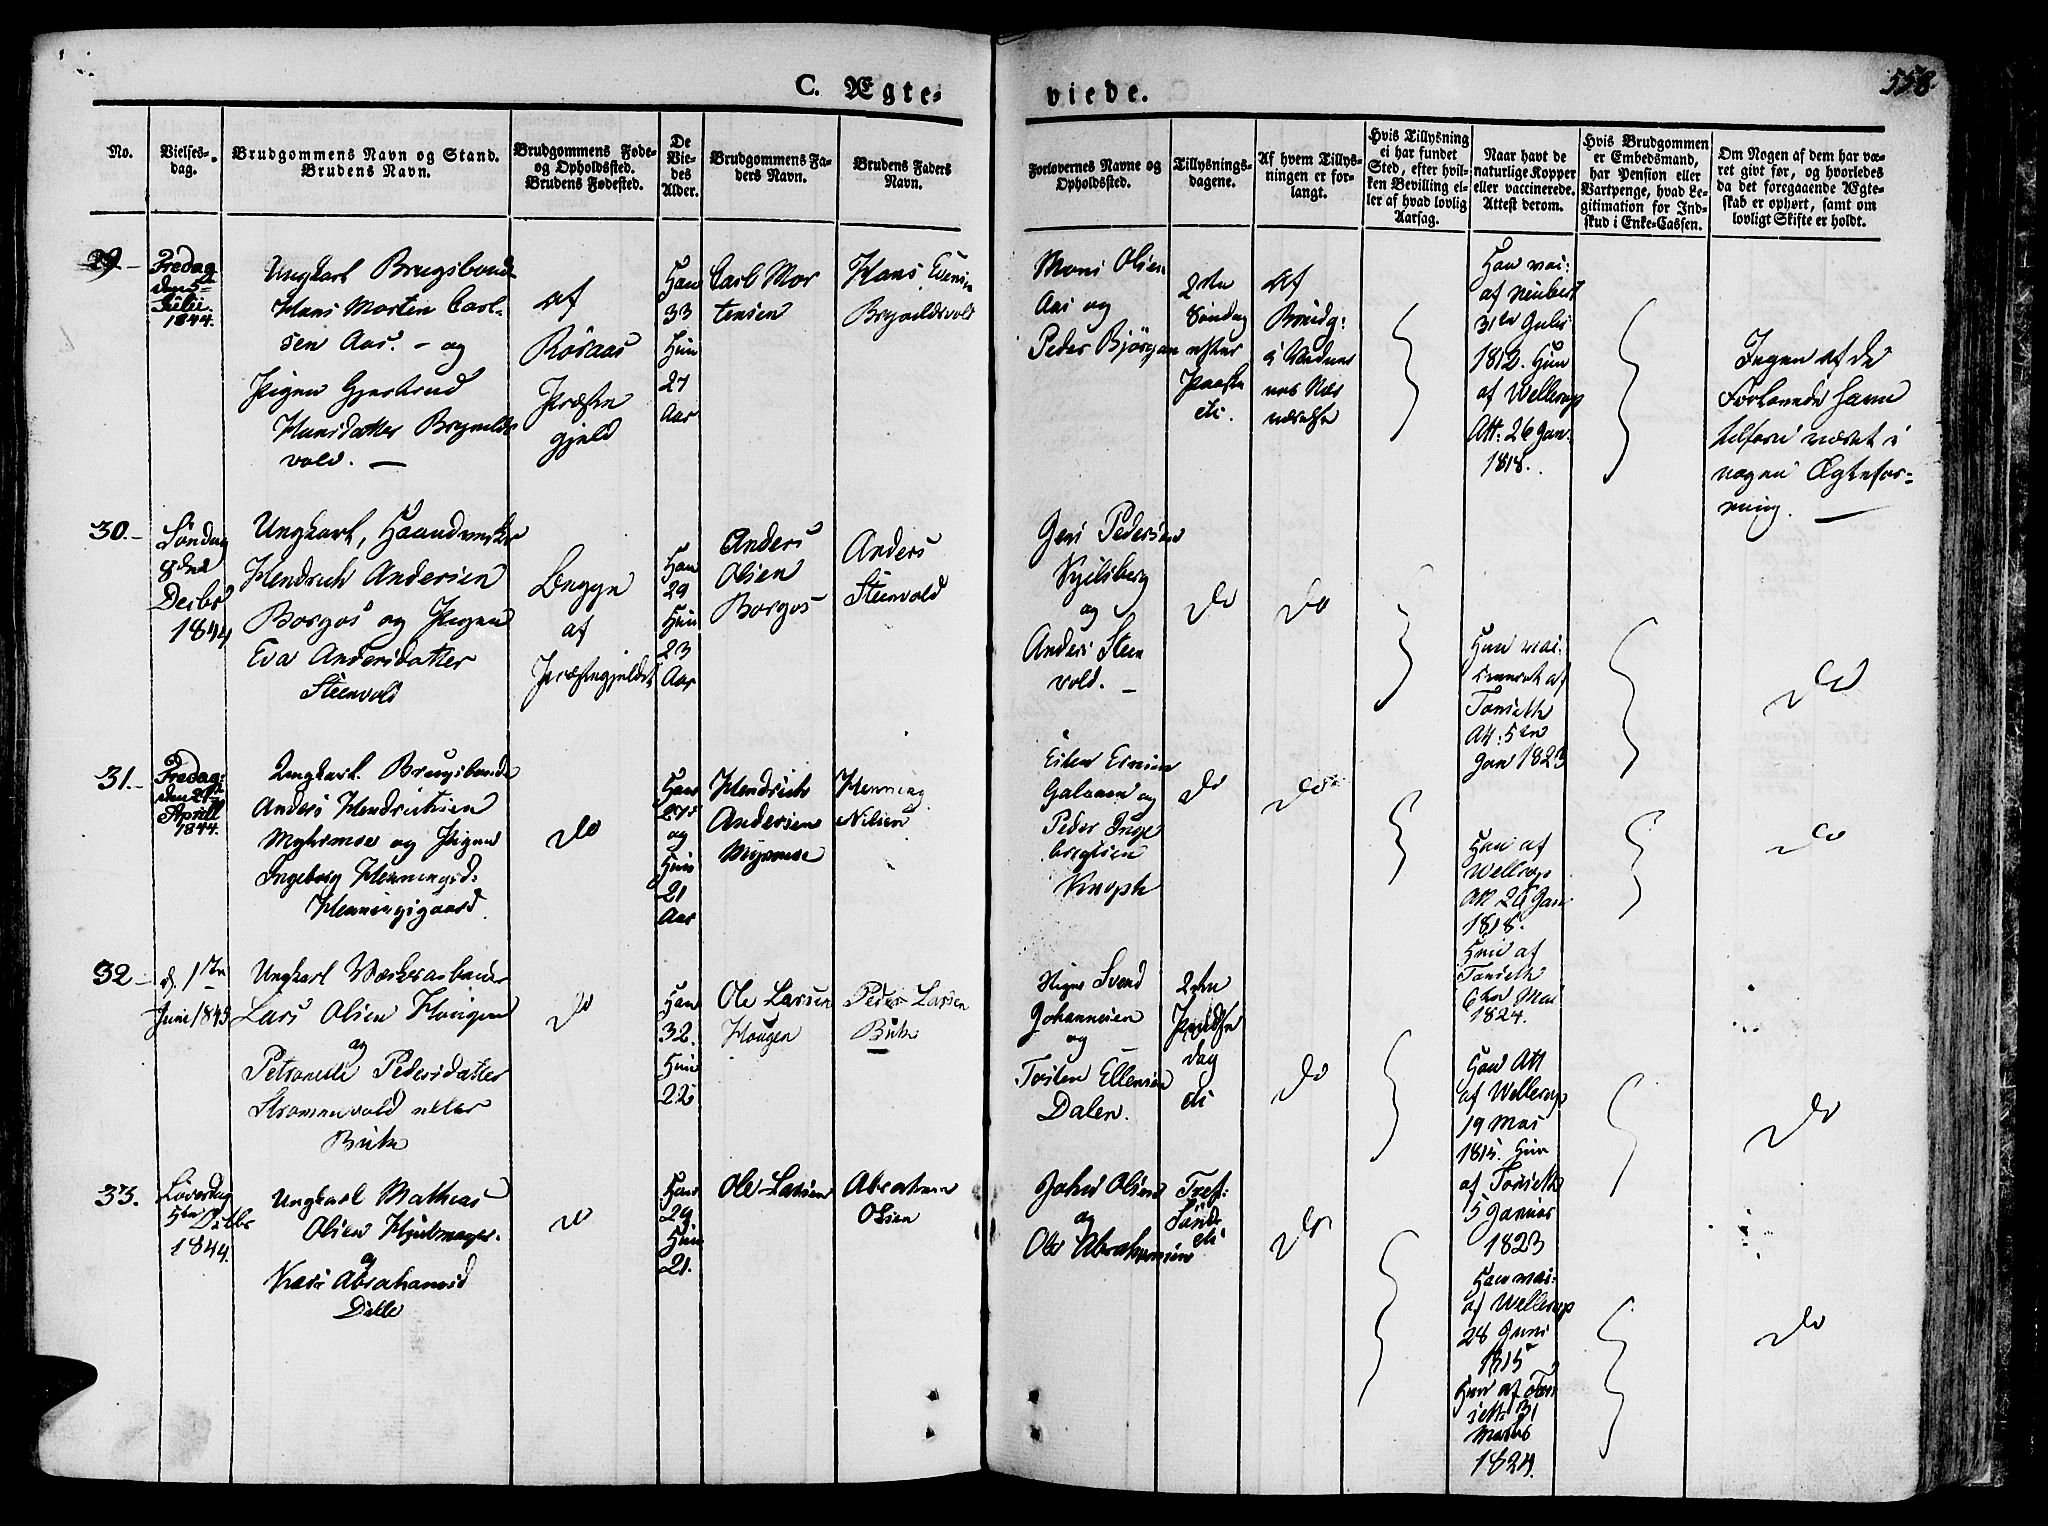 C. Ægte-
viede.
558.
No.
Vielses-
dag.
Brudgommens Navn og Stand.
Brudens Navn.
Brudgommens Føde-
og Opholdssted.
Brudens Fødested.
De
Vie-
des
Alder.
Brudgommens Fa-
ders Navn.
Brudens Faders
Navn.
Forlovernes Navne og
Opholdssted.
Tillysnings-
dagene.
Af hvem Tillys-
ningen er for-
langt.
Hvis Tillysning
ei har fundet
Sted, efter hvil-
ken Bevilling el-
ler af hvad lovlig
Aarsag.
Naar havt de
naturlige Kopper
eller vaccinerede.
Attest derom.
Hvis Brudgommen
er Embedsmand,
har Pension eller
Vartpenge, hvad Le-
gitimation for Ind-
skud i Enke-Cassen.
Om Nogen af dem har væ-
ret gift før, og hvorledes
da det foregaaende Ægte-
skab er ophørt, samt om
lovligt Skifte er holdt.
29
Fredag
den 5te
Julii
1844.
Ungkarl Brugsbonde
Hans Morten Carl-
sen Aas. - og
Pigen Gjertrud
Hansdatter Brynilds
vold. -
af
Röraas
Præste
gjeld
Han
33
Hun
27
Aar
Carl Mor
tensen
Hans Evensen
Brynildsvold
Mons Olsen
Aas og
Peder Bjørgan
2den
Søndag
efter
Paaske
etc.
Af
Brudg:
Han vac:
af Neubert
31te Julii
1812. Hun
af Wellerop
Att: 26 Jan:
1818.
Ingen af de
Forlovede have
tilforn været i
nogen Ægtefor-
ning. -
30.-
Søndag
8de
Decbr
1844
Ungkarl, Haandverker
Hendrich Andersen
Borgos og Pigen
Eva Andersdatter
Steenvold
Begge
af
Præstegjeldet
Han
29
Hun
23
Aar
Anders
Olsen
Borgos
Anders
Steenvold
Jens Pedersen
og
Anders Steen
vold. -
Do
Do
af
Tonseth
Att: 5te
Jan 1823
Do
31.-
Fredag
April
1844.
Ungkarl Brugsbonde
Anders Hendrichsen
Myhrmoe og Pigen
Ingeborg Henningsd:
Henningsgaard.
Do
Han
27
og
Hun
21
Aar
Hendrich
Andersen
Myrmoe
Henning
Nilsen
Galaaen og
Peder Inge
brigtsen
Knoph
Do
Do
Han af
Wellerop
Att 26 Jan
1818.
Hun af
Tonseth
6te Mai
1824.
Do
32
d. 1te
Juni 1845
Ungkarl Værksarbeider
Lars Olsen Hougen
og
Petronelle Pedersdatter
Strømmevold eller
Do
Han
32.
Hun
22
Ole Larsen
Hougen
Peder Larsen
Svend
Johannesen
og
Torsten Ellensen
Dalen.
2den
Pindse
dag
etc
Do
Han Att
af Wellerop
19 Mai
1815. Hun
af Tonseth
5 Januar
1823
Do
33.
Løverdag
1844.
Ungkarl Mathias
Olsen Hjulmager.
og
Kari Abrahamsd
Do
Han
29
Hun
21.
Ole Larsen
Abraham
Olsen
John Olsen
og
Ole Abrahamsen
Do
Han vac:
af Wellerop
28 Juni
1815
Hun af Ton
seth 31
Marts
1824.
Do